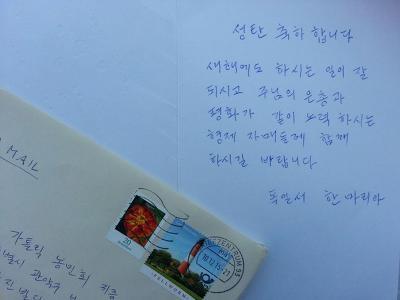 성탄 축하 합니다
새해에도 하시는 일이 잘
되시고 주님의 은총과
평화가 같이 노력 하시는
형제 자매들께 함께
하시길 바랍니다
독일서 한 마리아
MAIL
가톨릭 농민회
관악구
20
PELLWORM
BRIEFZENTRUM
10.12.15-21